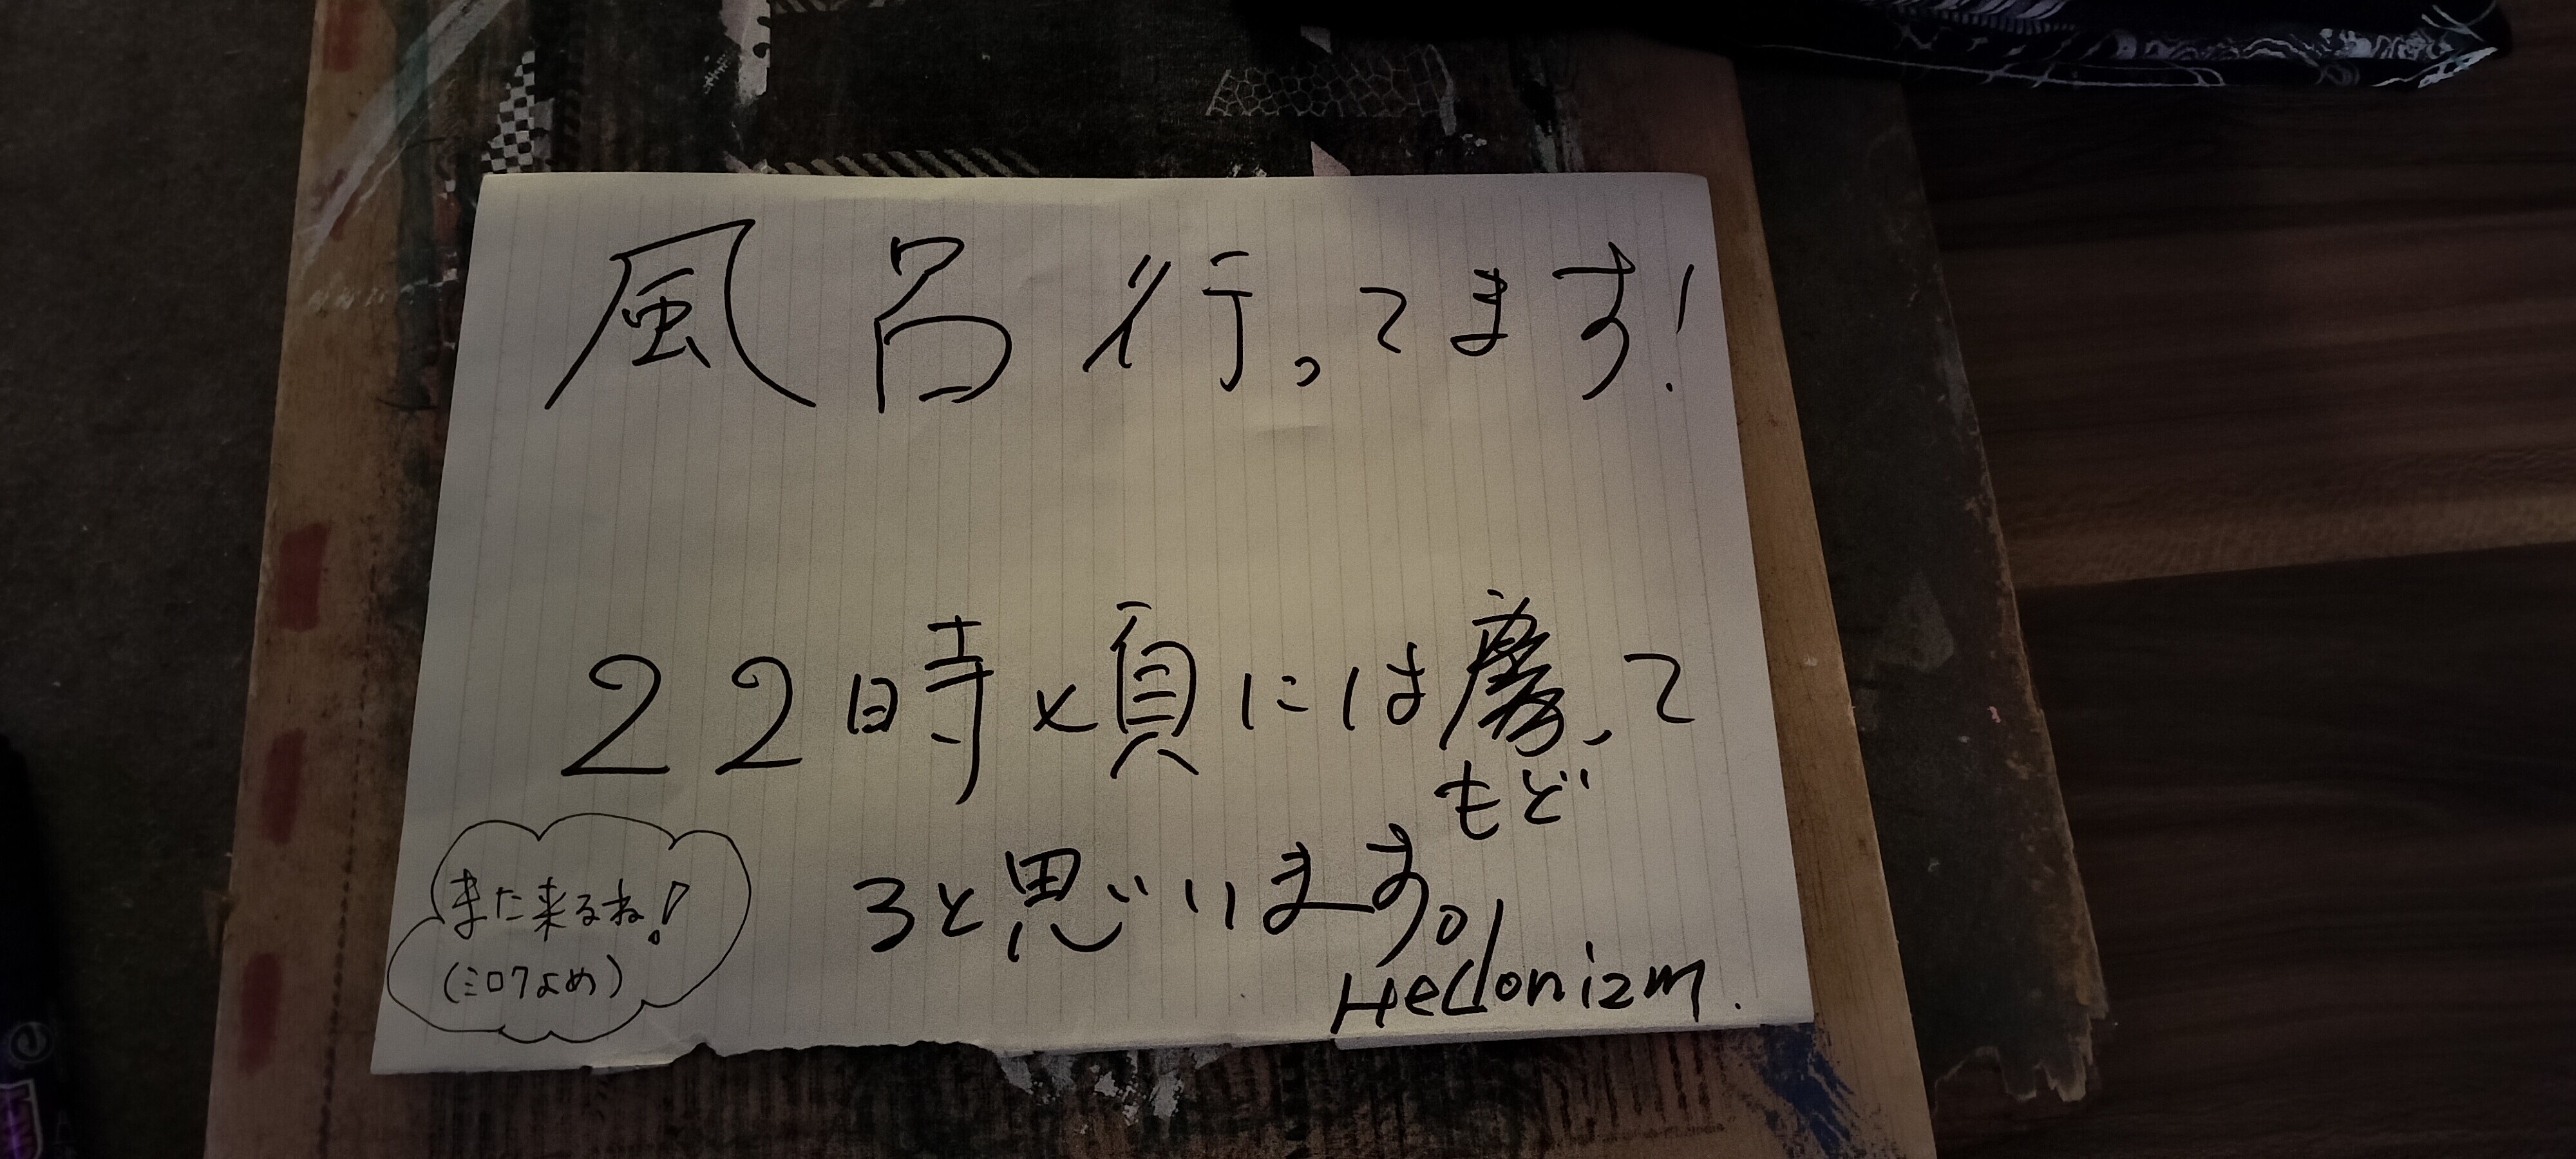 風呂行ってます!
22時頃にはもどって
ると思います。
Hedonizm.
また来るね!
(ミロクよめ)